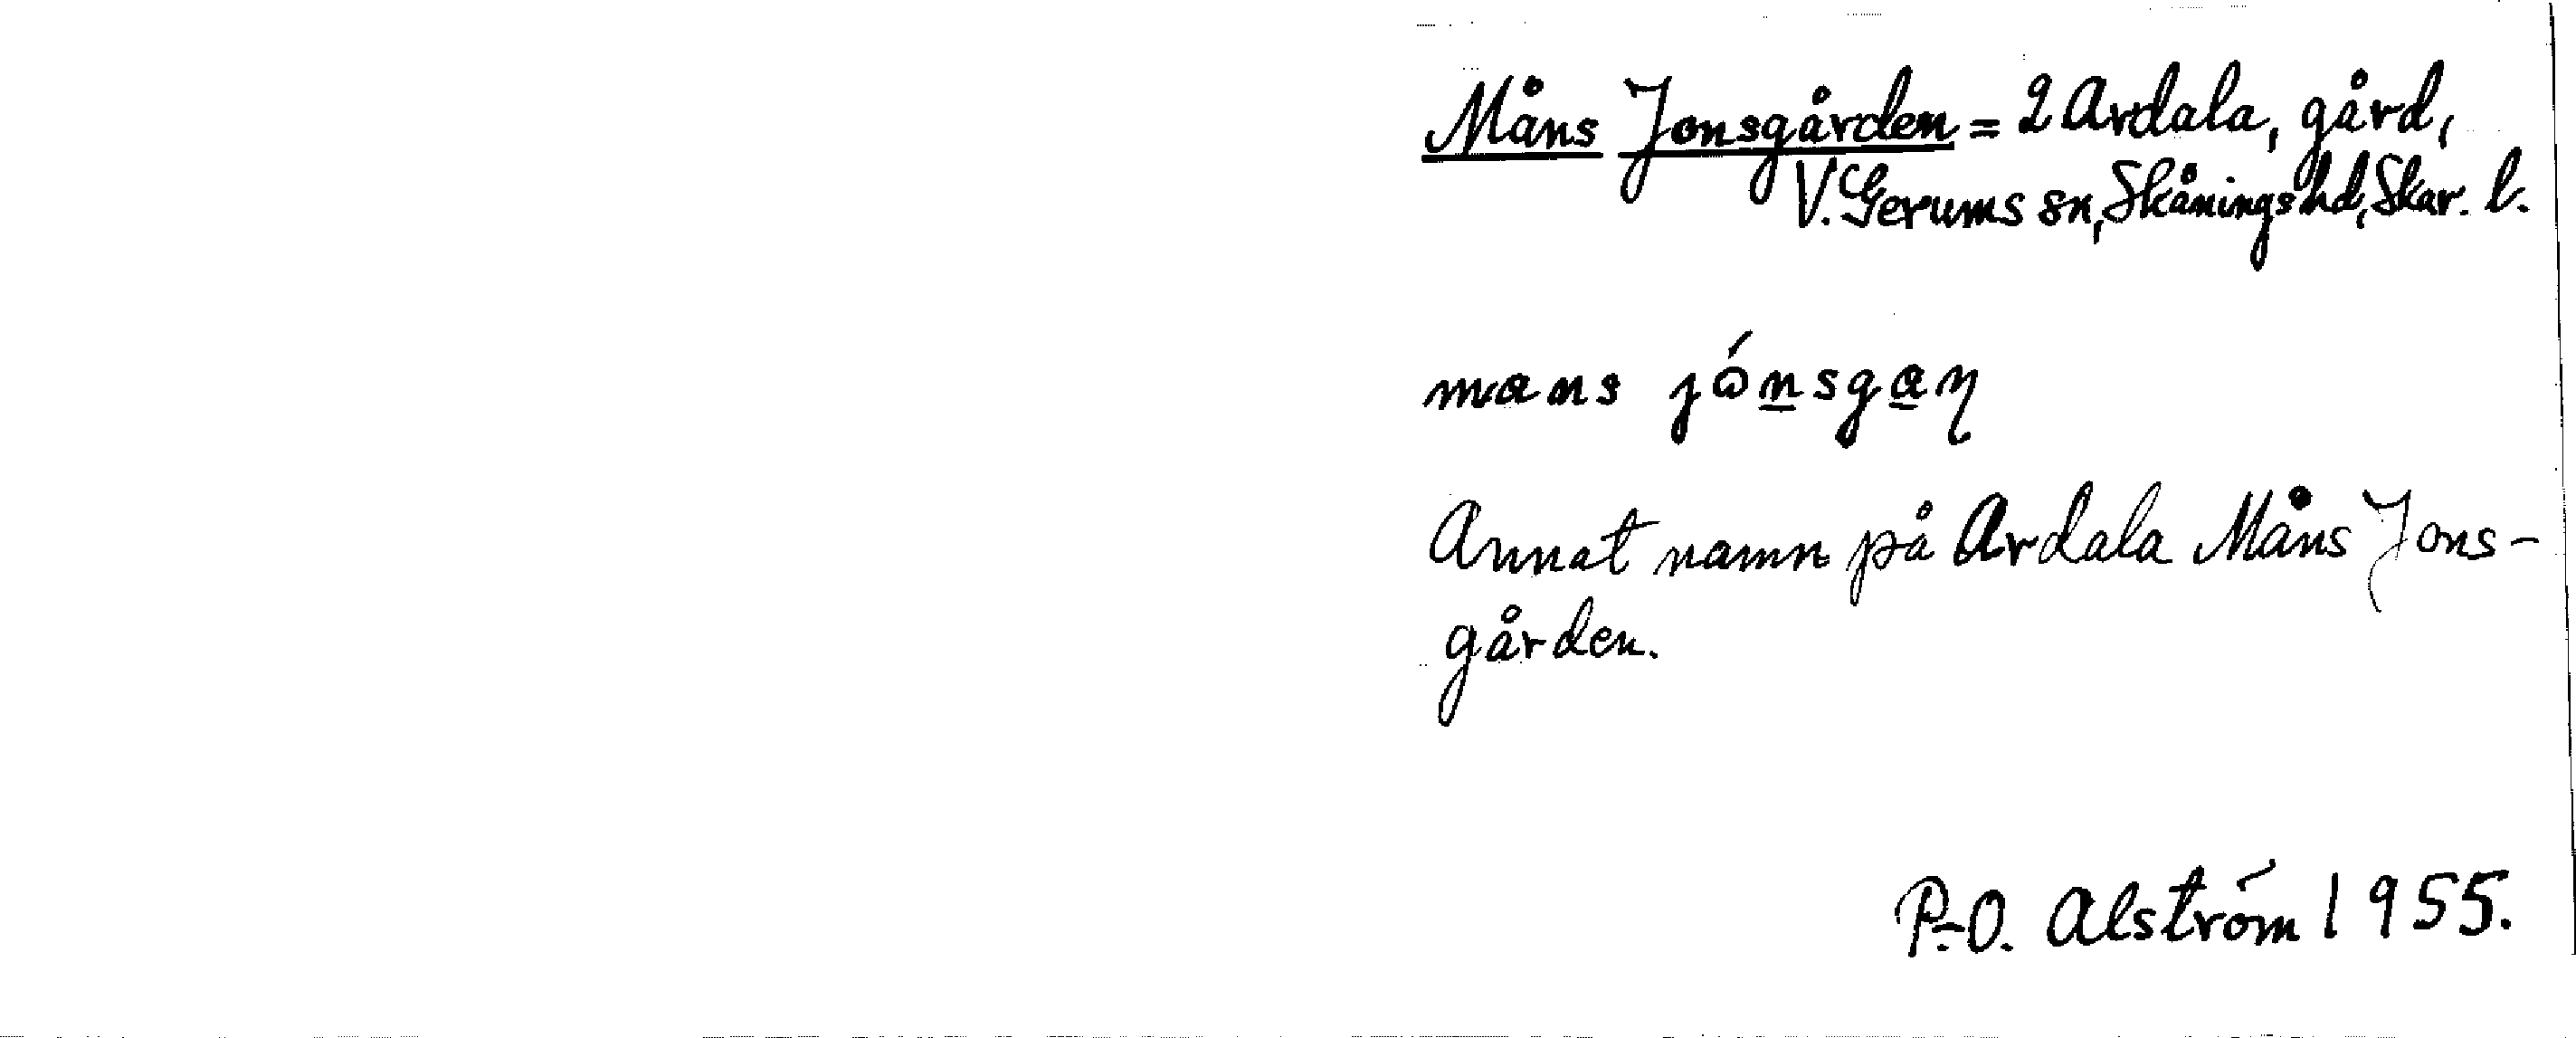 Måns Jonsgården = 2 Ardala, gård,
V. Gerums sn, Skånings hd, Skar. l.
mans jónsgaɳ
Annat namn på Ardala Måns Jons-
gården.
P.-O. Alström 1955.